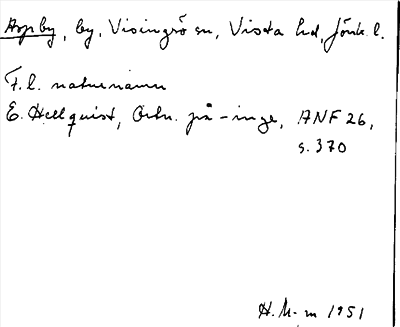 Aspby, by, Visingsö sn, Vista hd, Jönk. l.
F.l. naturnamn
E. Hellquist, Ortn. på -inge, ANF 26,
s. 370
H. M-m 1951